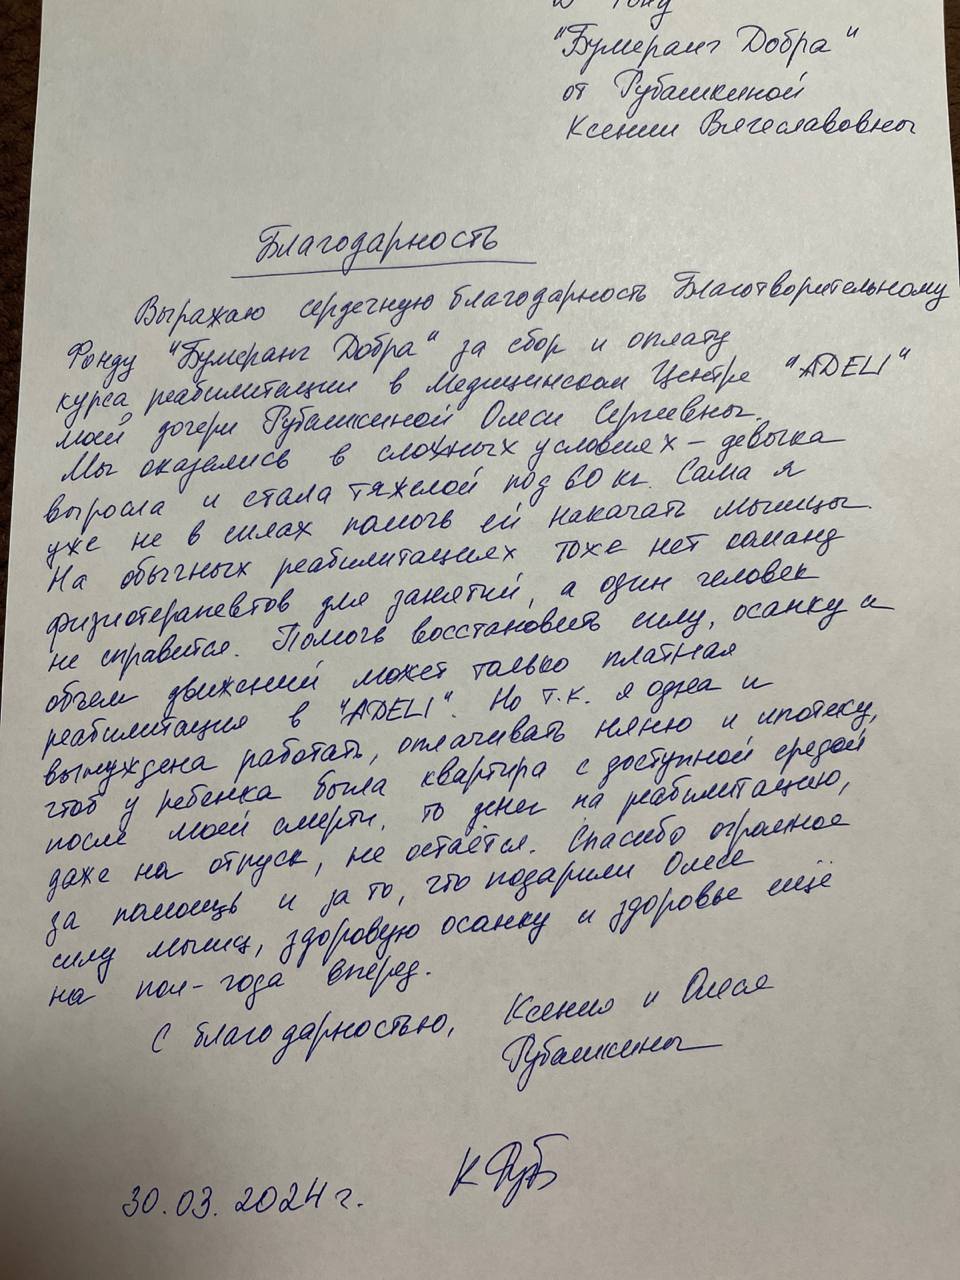 "Бумеранг Добра"
от Рубашкиной
Ксении Вячеславовны
Благодарность
Выражаю сердечную благодарность Благотворительному
Фонду "Бумеранг Добра" за сбор и оплату
курса реабилитации в Медицинском Центре "ADELI"
моей дочери Рубашкиной Олеси Сергеевны.
Мы оказались в сложных условиях – девычка
выросла и стала тяжелой под 60 кг. Сама я
уже не в силах помочь ей накачать мышцы.
На обычных реабилитациях тоже нет команд
физиотерапевтов для занятий, а один человек
не справится. Помочь восстановить силу, осанку и
объем движений может только платная
реабилитация в "ADELI". Но т.к. я одна и
вынуждена работать, оплачивать няню и ипотеку,
чтоб у ребенка была квартира с доступной средой
после моей смерти, то денег на реабилитацию,
даже на отпуск, не остаётся. Спасибо огромное
за помощь и за то, что подарили Олесе
силу мышц, здоровую осанку и здоровье ещё
на пол-года вперёд.
С благодарностью, Ксения и Олеся
Рубашкины
К Руб
30.03.2024 г.